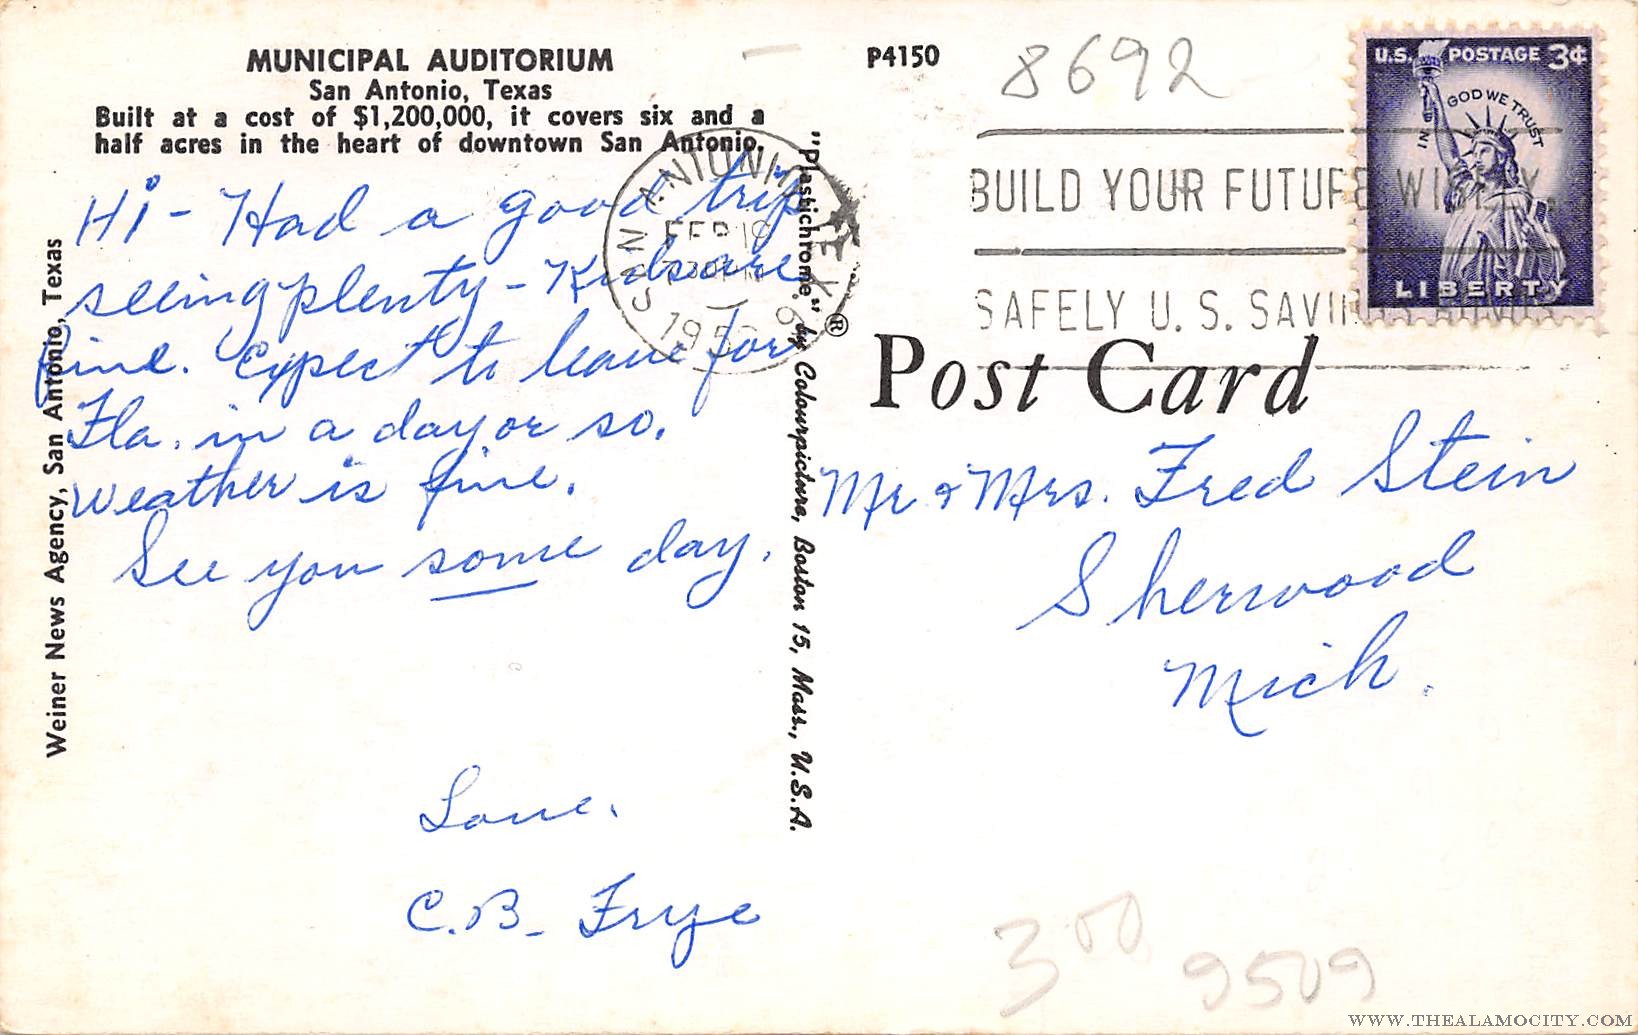 MUNICIPAL AUDITORIUM
San Antonio, Texas
Built at a cost of $1,200,000, it covers six and a
half acres in the heart of downtown San Antonio.
Hi - Had a good trip
seeing plenty - Kids are
fine. Expect to leave for
Fla. in a day or so.
Weather is fine.
See you some day.
Love.
C.B. Frye
Weiner News Agency, San Antonio, Texas
"Plastichrome" ® by Colourpicture, Boston 15, Mass., U.S.A.
P4150
8692
SAN ANTONIO TEX
FEB 18
BUILD YOUR FUTURE WISELY
SAFELY U. S. SAVINGS BONDS
U.S. POSTAGE 3¢
IN GOD WE TRUST
LIBERTY
Post Card
Mr & Mrs. Fred Stein
Sherwood
Mich.
3 00
9509
WWW.THEALAMOCITY.COM